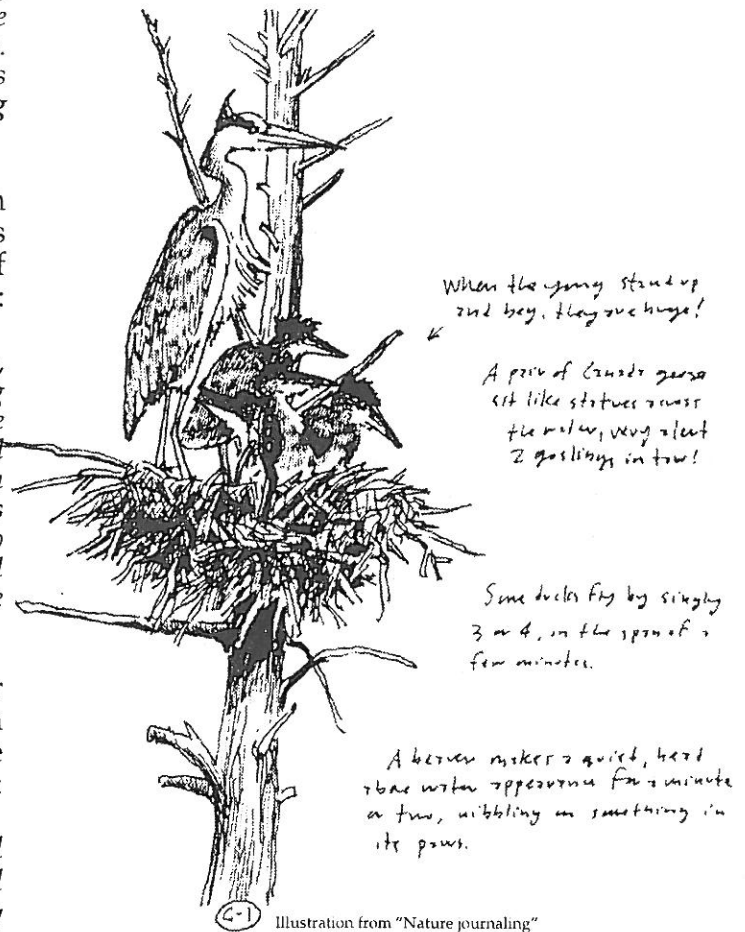 When the young stand up
and beg, they are huge!
A pair of Canada geese
sit like statues across
the water, very alert
2 goslings in tow!
Some ducks fly by singly
3 or 4, in the span of a
few minutes.
A beaver makes a quiet, head
above water appearance for a minute
or two, nibbling on something in
its paws.
C-1
Illustration from "Nature journaling"